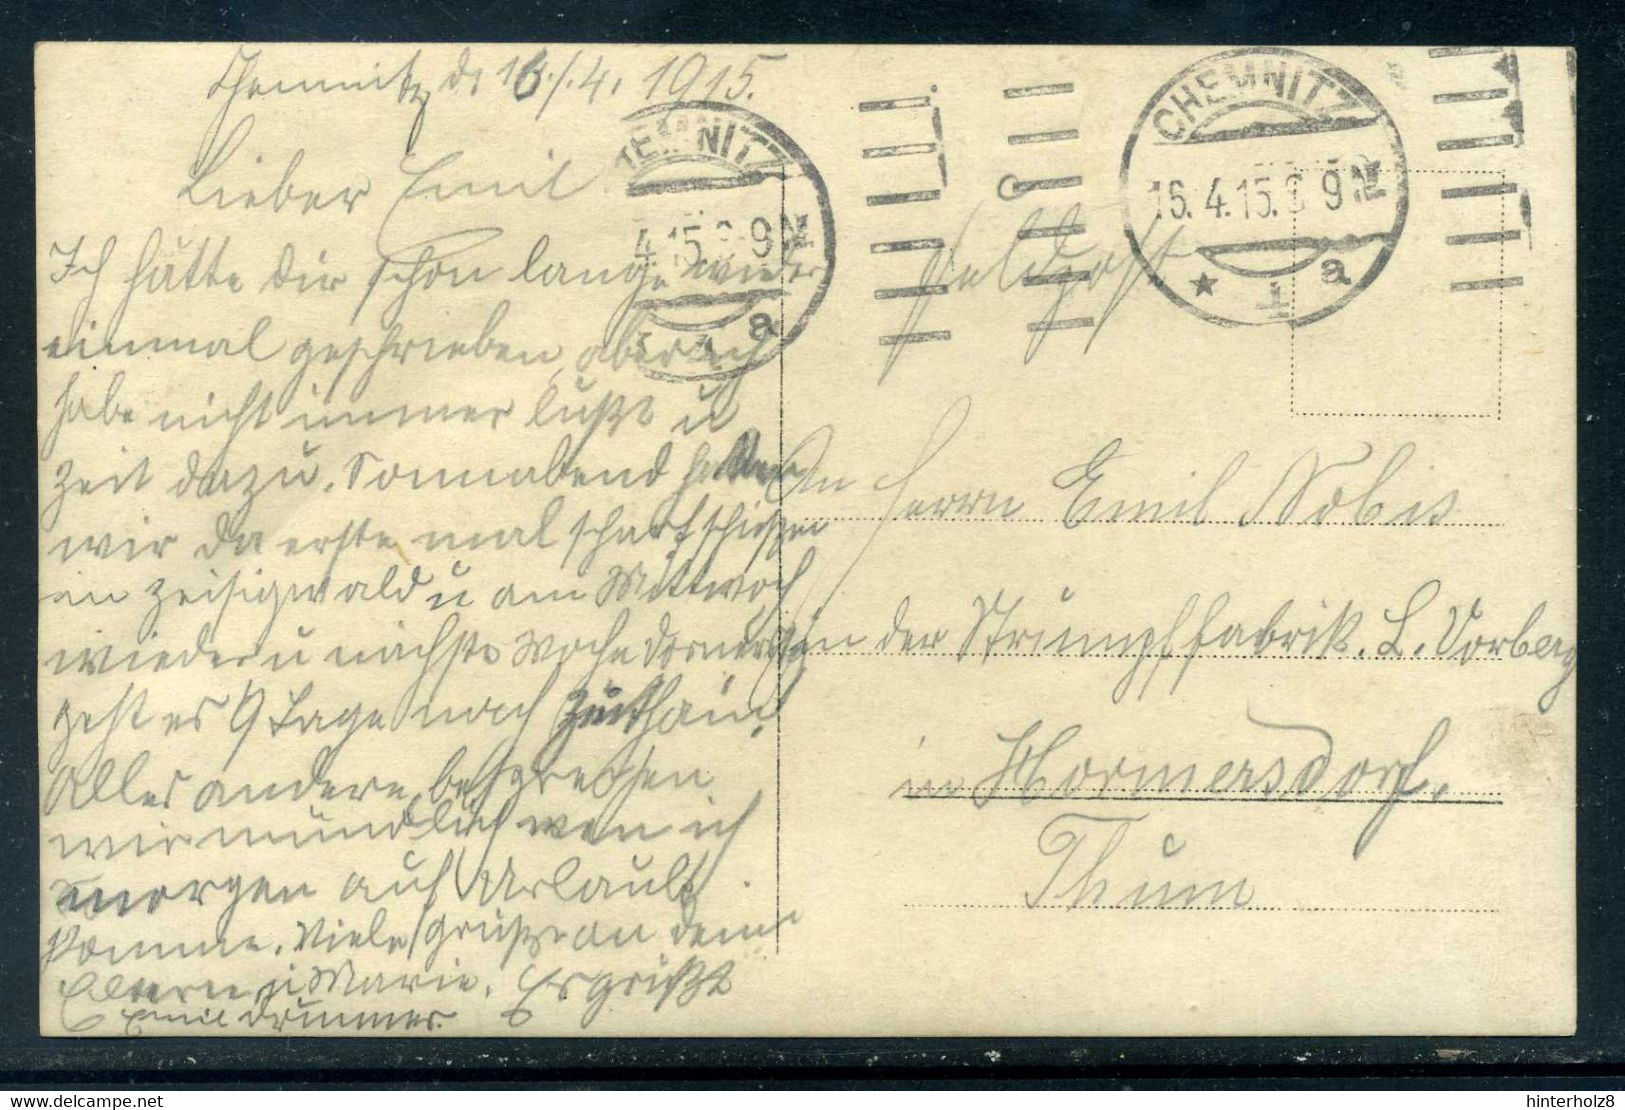 Chemnitz d. 16./.4. 1915.
Lieber Emil
Ich hätte dir schon lange wieder
einmal geschrieben, aber ich
habe nicht immer lußt u
Zeit dazu. Sonnabend hatten
wir da erste mal scharfschießen
in Zeisigwald u am Mittwoch
wieder u nächste Woche Donnerstag
geht es 9 Tage nach Zeithain.
Alles andere besprechen
wir mündlich wen ich
morgen auf Urlaub
komme. Viele Grüße an deine
Eltern u Marie. Es grüßt
Emil Drummer
CHEMNITZ
16.4.15. 8-9N
* 1 a
EMNITZ
4.15. 8-9N
a
Feldpost
An Herrn Emil Nobis
in der Strumpffabrik. L. Vorberg
in Hormersdorf.
Thum
delcampe.net
hinterholz8